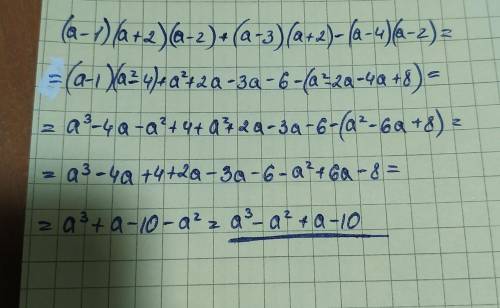 (a-1)(a+2)(a-2)+(a-3)(a+2)-(a-4)(a-2)=
=(a-1)(a²-4)+a²+2a-3a-6-(a²-2a-4a+8)=
= a³-4a-a²+4+a²+2a-3a-6-(a²-6a+8)=
= a³-4a+4+2a-3a-6-a²+6a-8=
= a³+a-10-a²= a³-a²+a-10